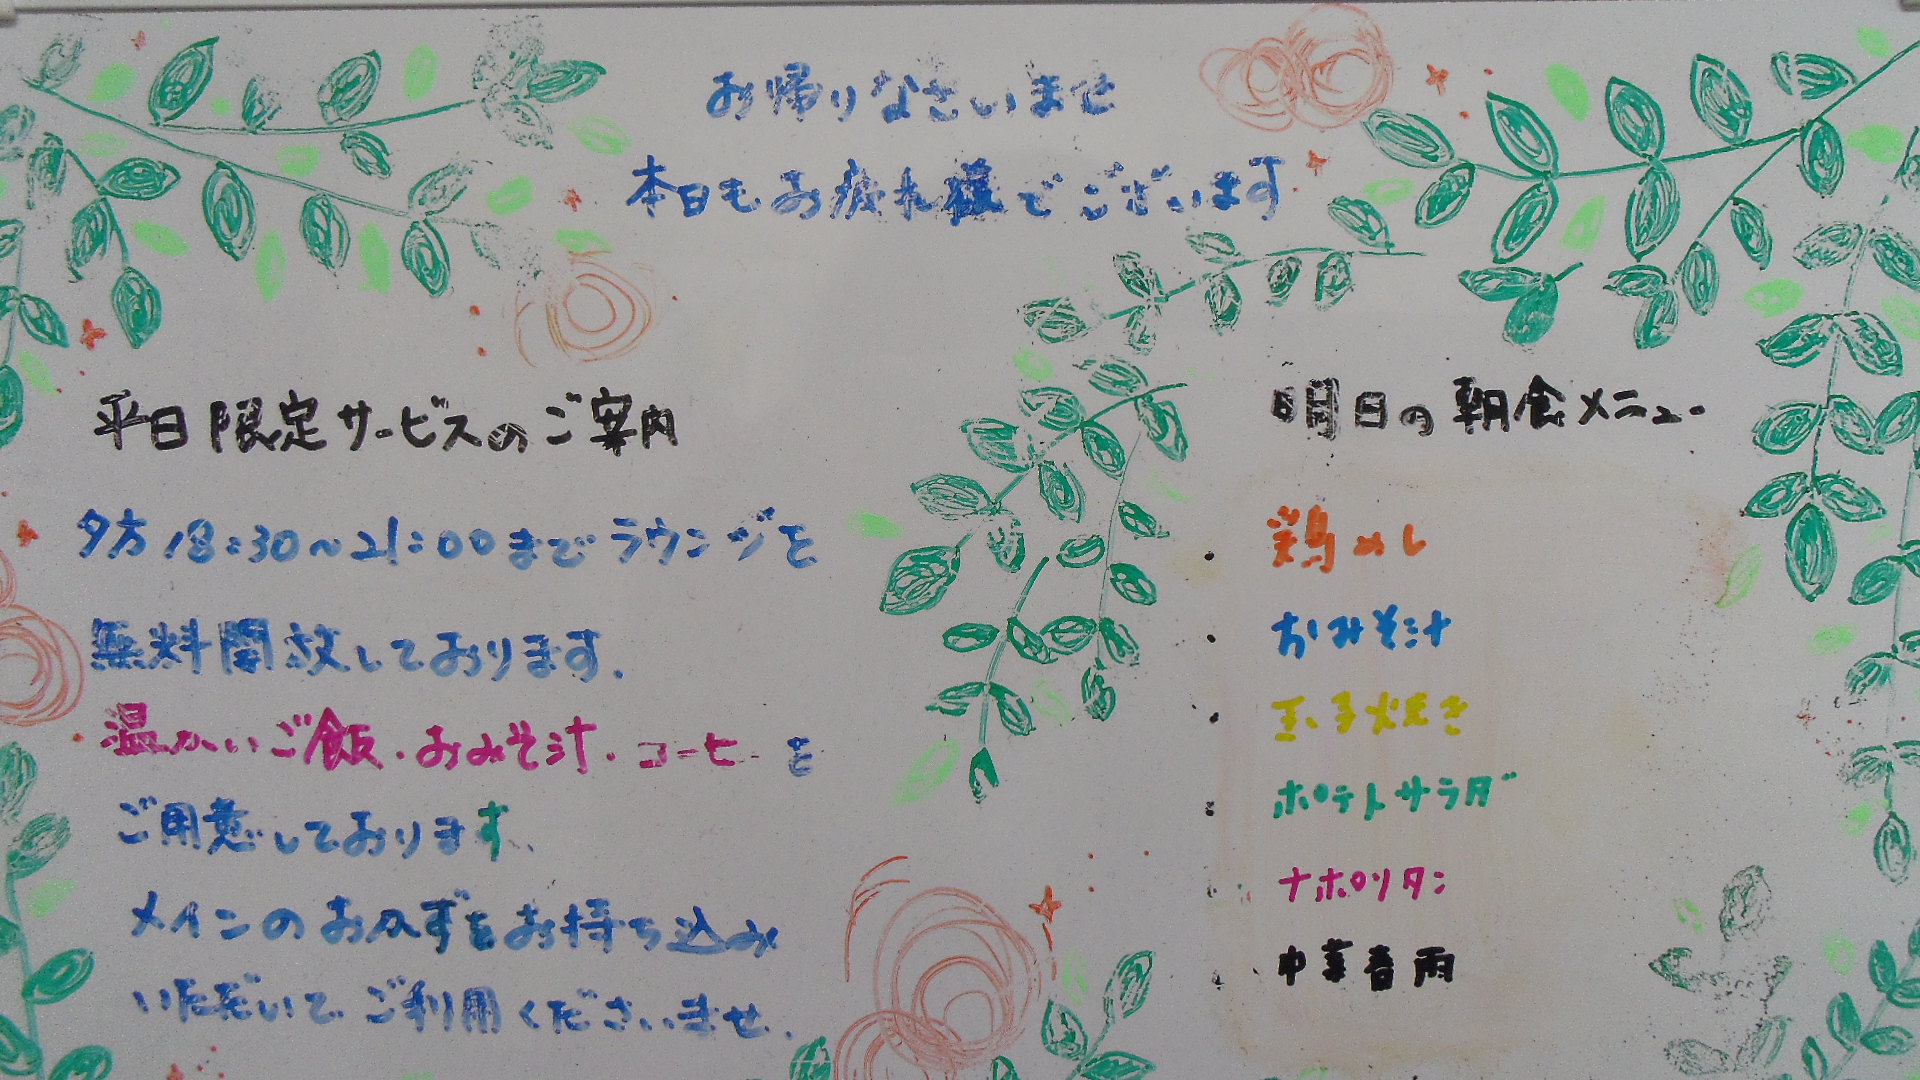 お帰りなさいませ
本日もお疲れ様でございます
平日限定サービスのご案内
夕方18:30～21:00までラウンジを
無料開放しております.
温かいご飯・おみそ汁・コーヒーを
ご用意しております.
メインのおかずをお持ち込み
いただいてご利用くださいませ.
明日の朝食メニュー
・鶏めし
・おみそ汁
・玉子焼き
・ポテトサラダ
・ナポリタン
・中華春雨